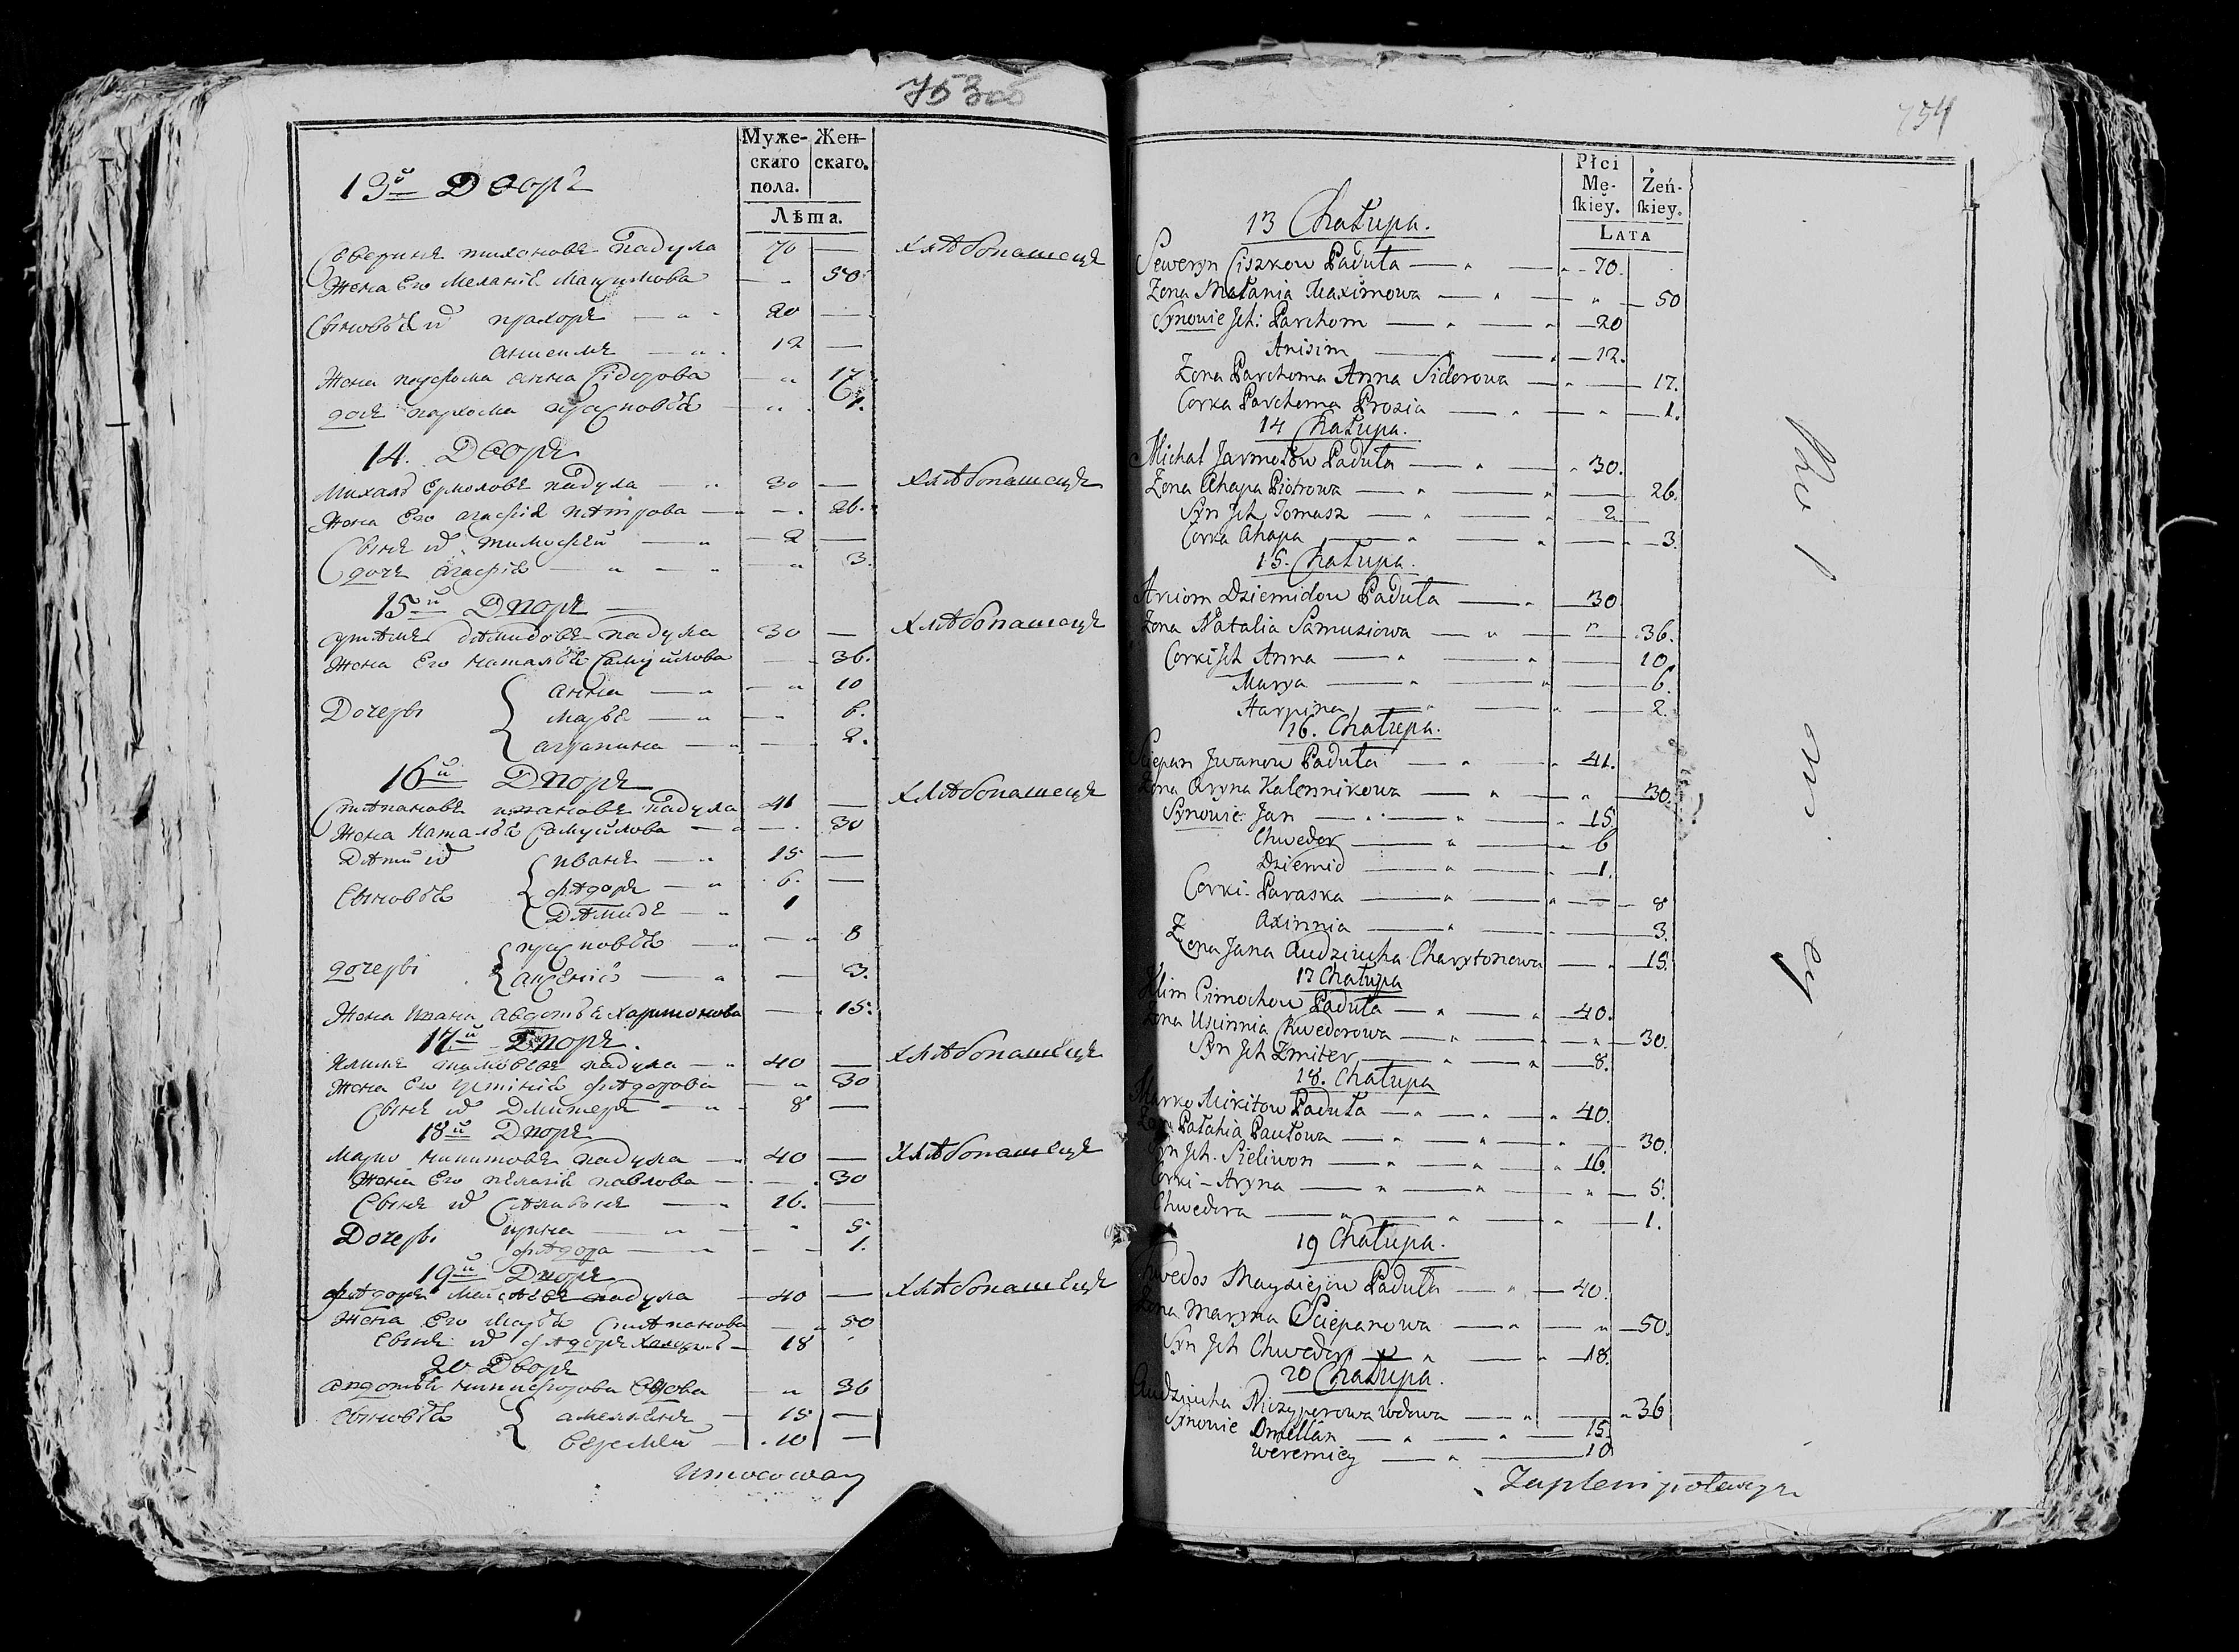 753об
Муже-
скаго
пола.
Жен-
скаго.
Лѣта.
13й Дворъ
Северинъ тихоновъ падула 70 — хлѣбопашецъ
Жена Его Меланія Максимова — " 50
Сыновья их прахоръ — " 20 —
анисимъ — " 12 —
Жена пархома анна Сідорова " 17.
доч пархома прасковья — " 1.
14. Дворъ
Михалъ Ермоловъ падула — " 30 — хлѣбопашецъ
Жена Его агафія пѣтрова — " — 26.
Сынъ их тимофей — " 2 —
дочь агафія — " — " — " 3.
15й Дворъ —
артѣмъ дѣмидовъ падула 30 — хлѣбопашецъ
Жена Его наталья Самуйлова — 36.
Дочери анна — " — " 10
марья — " — 6.
аграпина — " — 2.
16й Дворъ
Стѣпановъ ивановъ падула 41 — хлѣбопашецъ
Жена наталья Самуйлова — " — 30
Дѣти их иванъ — " 15 —
Сыновья фѣдоръ — " 6. —
Дѣмидъ — " 1
дочери прасковья — " — " 8
аксенія — " — 3.
Жена ивана авдотья харитонова — 15.
17й Дворъ.
Климъ тимофеевъ падула — " 40 — хлѣбопашецъ
Жена Его устинія фѣдорова — " 30
Сынъ их Дмитеръ — " 8 —
18й Дворъ
Марко никитовъ падула — " 40 — хлѣбопашецъ
Жена Его пелагія павлова — . — . 30
Сынъ их Сѣливонъ — " 16. —
Дочери ирина — " — " 5
фѣдора — " — 1.
19й Дворъ
фѣдоръ Мосѣевъ падула — 40 — хлѣбопашецъ
Жена Его Марья стѣпанова — " 50
Сынъ их фѣдоръ — 18
20 Дворъ
авдотья никифорова вдова — " 36
Сыновья амельянъ — 15 —
Еремей — 10 —
754
Płci
Mę-
ſkiey.
Żeń-
ſkiey.
LATA
13 Chałupa.
Seweryn Ciszkow Paduła — " — " 70.
Żona Małania Maximowa — " — " — 50
Synowie Jch: Parchom — " — " 20
Anisim — " — " 12.
Żona Parchoma Anna Sidorowa — " — 17.
Corka Parchoma Prosia — " — " — 1.
14 Chałupa.
Michał Jarmołow Paduła — " — " 30.
Żona Ahapa Piotrowa — " — " — 26.
Syn Jch Tomasz — " — " 2
Corka Ahapa — " — " — 3.
15. Chałupa.
Arciom Dziemidow Paduła — " — 30
Żona Natalia Samusiowa — " — " — 36.
Corki Jch Anna — " — " — 10.
Marya — " — " — 6.
Harpina — " — " — 2.
16. Chałupa.
Sciepan Jwanow Paduła — " — " 41.
Żona Aryna Kalennikowa — " — " — 30.
Synowie Jan — " — " 15.
Chwedor — " — " 6
Dziemid — " — " 1.
Corki- Paraska — " — " — 8
Axinnia — " — " — 3.
Żona Jana Audziucha Charytonowa — " 15.
17 Chałupa
Klim Cimochow Paduła — " — " 40.
Żona Uscinnia Chwedorowa — " — " — 30.
Syn Jch Zmiter — " — " 8.
18. Chałupa
Marko Mikitow Paduła — " — " 40.
Żona Pałahia Pawłowa — " — " — 30.
Syn Jch. Sieliwon — " — " 16.
Corki - Aryna — " — " — 5.
Chwedora — " — " — 1.
19 Chałupa.
Chwedos Maysiejow Paduła — " — 40.
Żona Maryna Sciepanowa — " — " 50.
Syn Jch Chwedor — " — " 18.
20 Chałupa.
Audziucha Niczyporowa wdowa — " — " 36
Synowie Omellan — " — " 15.
Weremiey — " — 10